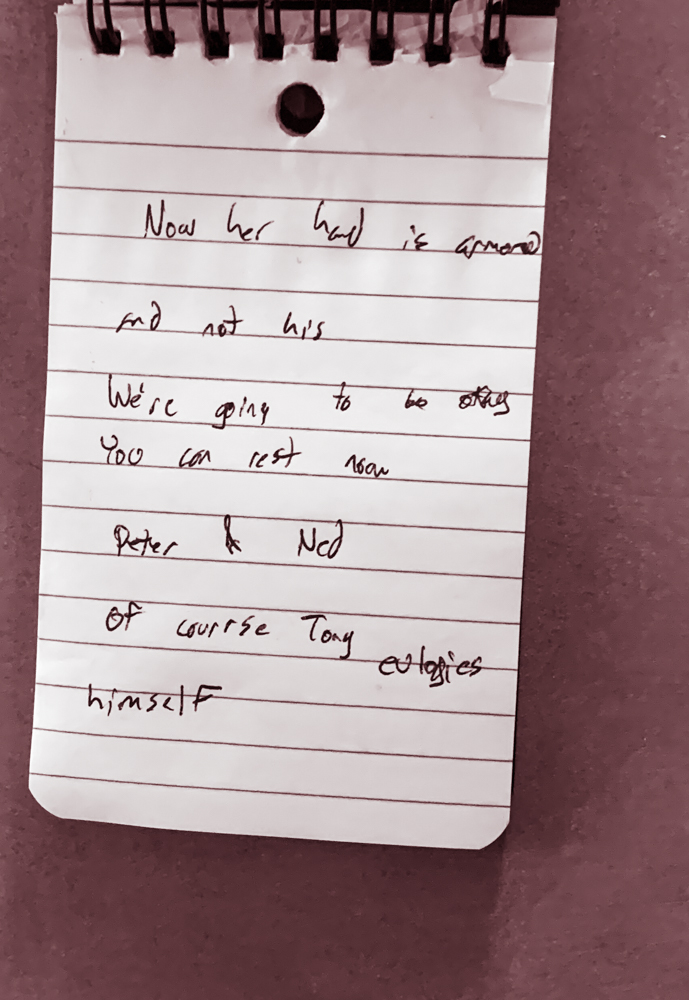 Now her hand is armored
and not his
We're going to be okay
You can rest now
Peter & Ned
Of courrse Tony eulogies
himself